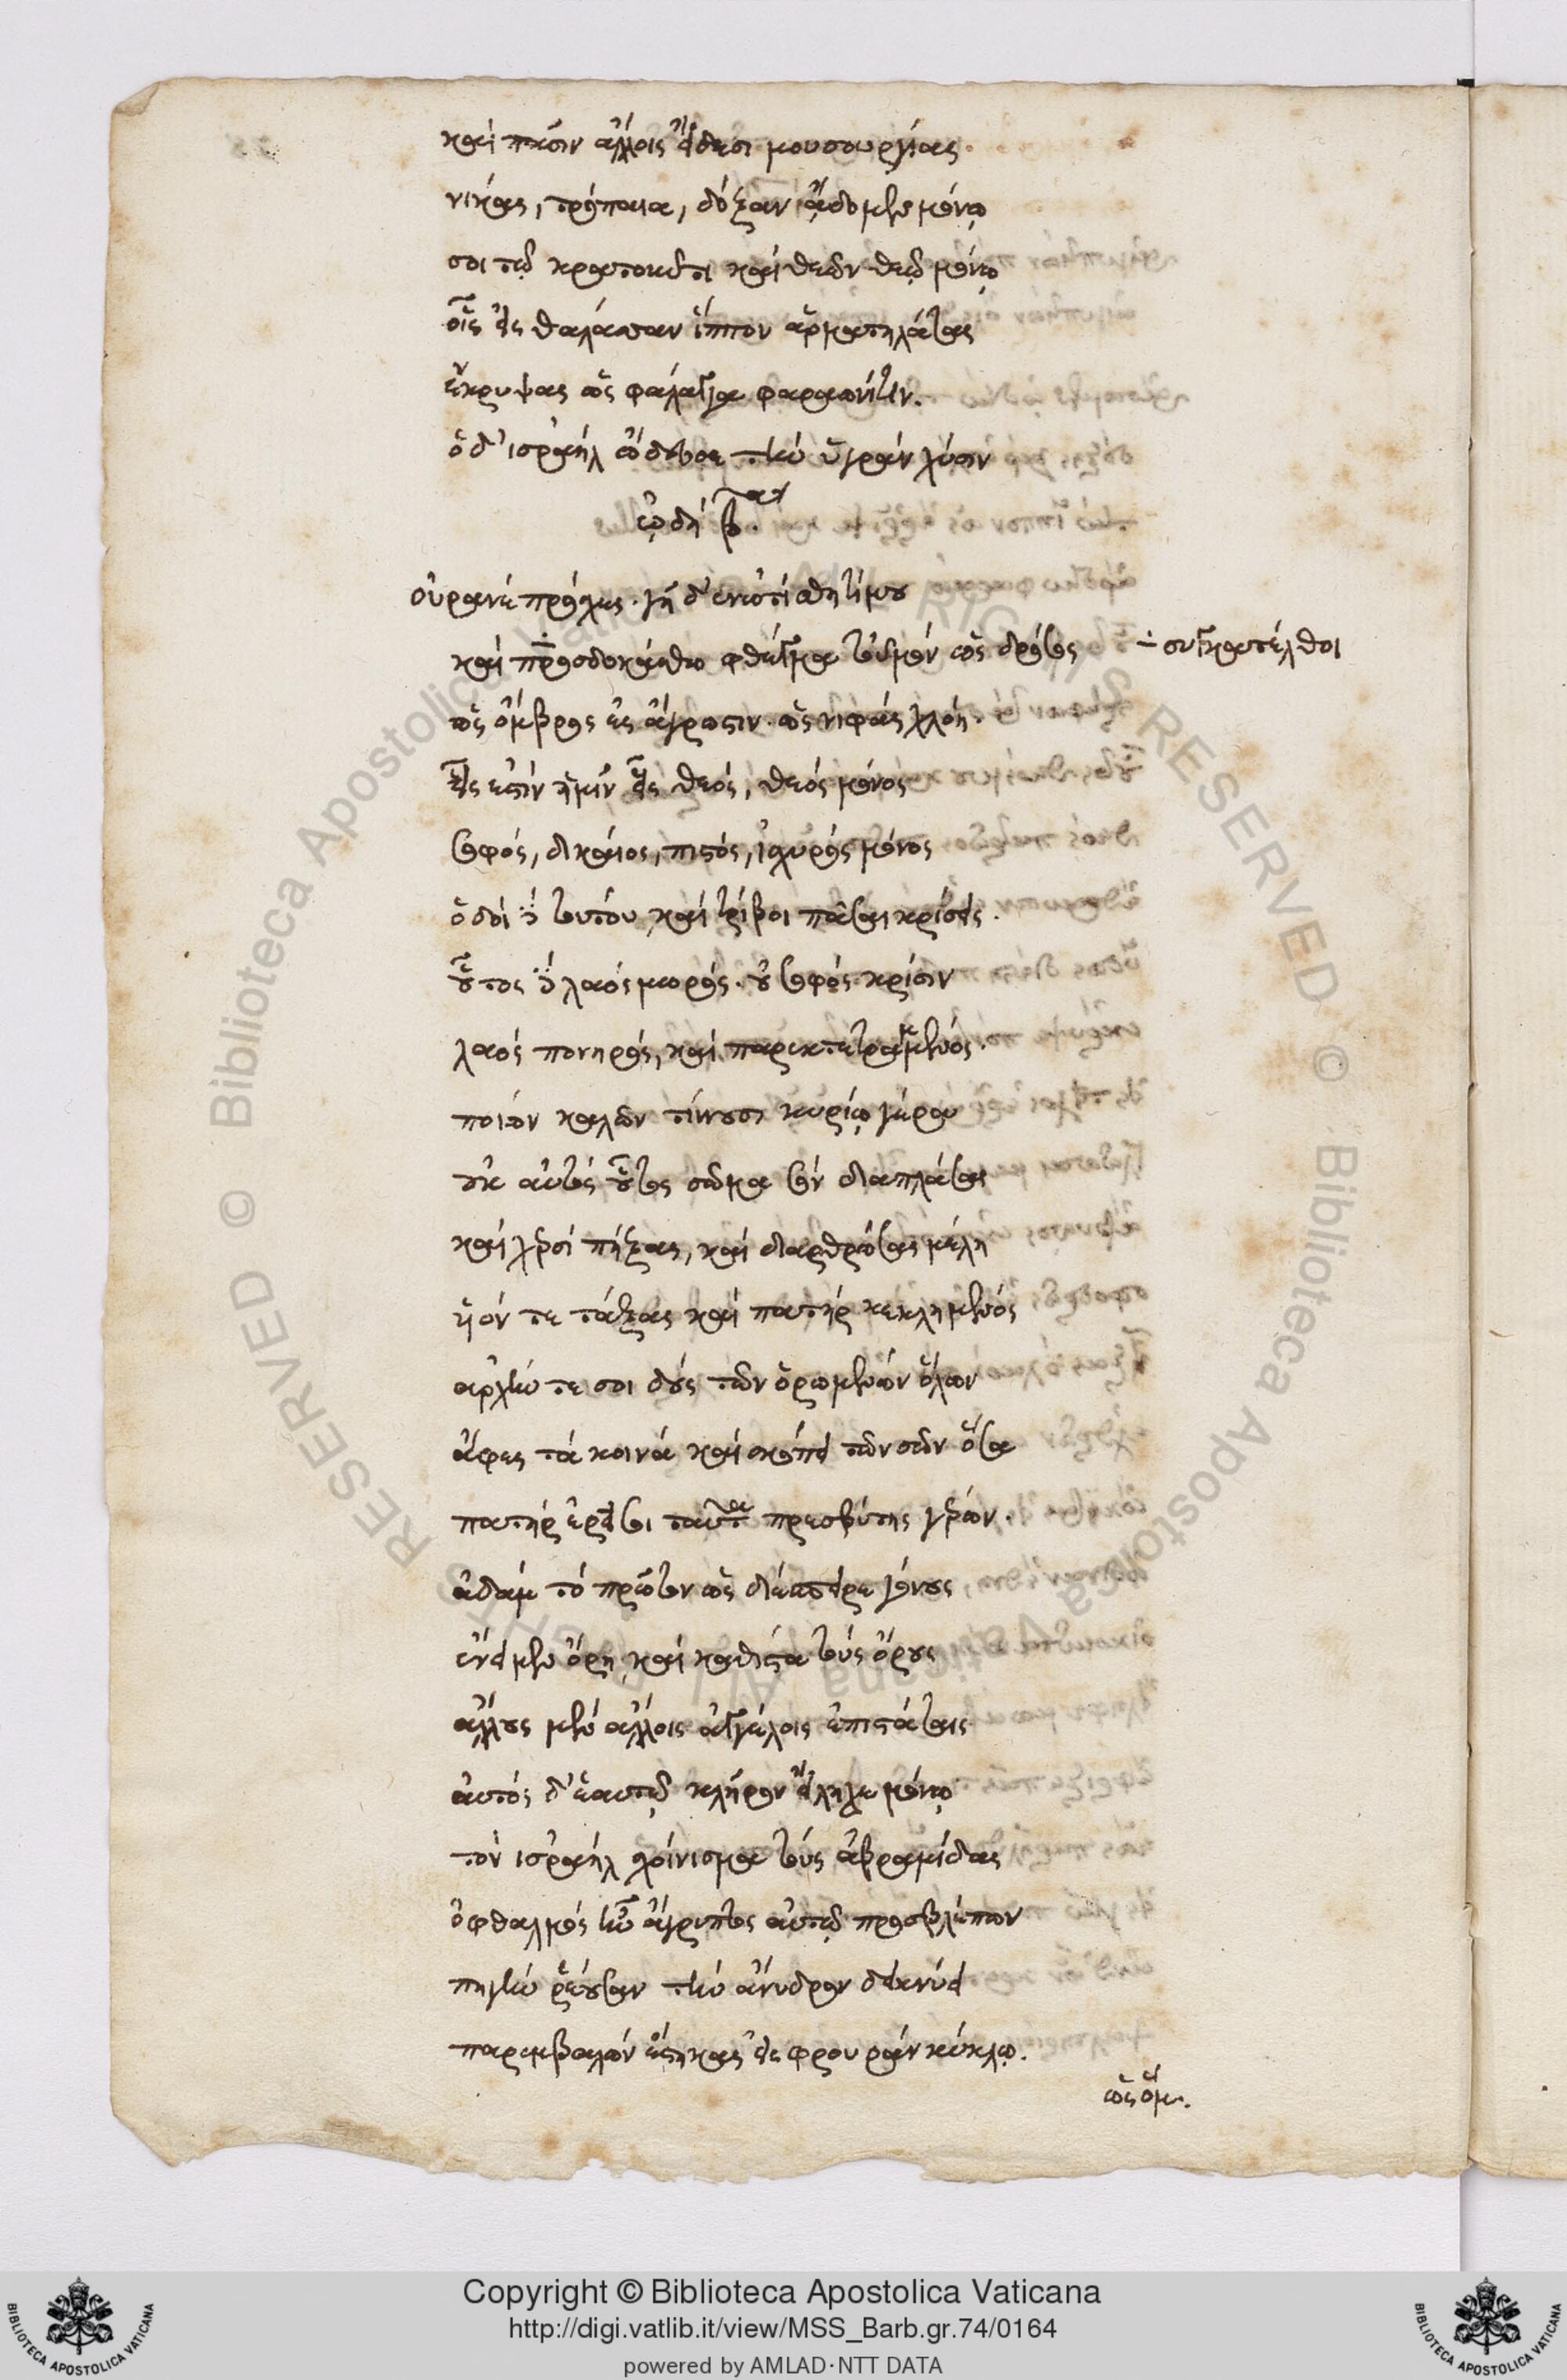 καὶ πᾶσιν ἄλλοις εἴδεσι μουσουργίας.
νίκας, τρόπαια, δόξαν ἄδομεν μόνῳ
σοι τῷ κρατοῦντι καὶ θεῶν θεῷ μόνῳ
οἷς εἰς θαλάσσαν ἵππον ἁρματηλάτας
ἔκρυψας ὡς φάλαγγα φαραωνίτιν.
ὁ δ' ἰσραὴλ ὥδευσε τὴν ὑγρὰν λύσιν
ᾠδὴ β.
οὐρανὲ πρόσχες. γῆ δ' ἐνωτίσθητί μου
καὶ προσδοκάσθω φθέγμα τοὐμὸν ὡς δρόσος
÷ συγκατέλθοι
ὡς ὄμβρος εἰς ἄγρωστιν. ὡς νιφὰς χλόη.
εἷς ἐστὶν ἡμῖν εἷς θεός, θεὸς μόνος
σοφός, δίκαιος, πιστός, ἰσχυρὸς μόνος
ὁδοὶ δ' τούτου καὶ τρίβοι πᾶσαι κρίσεις.
οὗτος δ' λαὸς μωρός. οὐ σοφὸς κρίσιν
λαὸς πονηρός, καὶ παρεκτετραμμένος.
ποῖον καλῶν τίνουσι κυρίῳ γέρας
οὐκ αὐτὸς οὗτος σῶμα σὸν διαπλάσας
καὶ χερσὶ πήξας, καὶ διαρθρώσας μέλη
υἱόν τε τάξας καὶ πατὴρ κεκλημένος
ἀρχήν τε σοι δοὺς τῶν ὁρωμένων ὅλων
ἄφες τὰ κοινὰ καὶ σκόπει τῶν σῶν ὅσα
πατὴρ ἐρεῖ σοι ταῦτα πρεσβύτης γέρων.
ἀδὰμ τὸ πρῶτον ὡς διέσπειρε γένους
ἐνείμεν ὄρη καὶ καθιστᾶ τοὺς ὅρους
ἄλλους μὲν ἄλλοις ἀγγέλοις ἐπιστάταις
αὐτὸς δ' ἑαυτῷ κλῆρον εἴληχε μόνῳ
τὸν ἰσραὴλ χοίνισμα τοὺς ἀβραμίδας
ὀφθαλμὸς ἦν ἄγρυπτος αὐτῷ προσβλέπων
πηγὴν ῥέουσαν τὴν ἄνυδρον δεικνύει
παρεμβαλὼν ἕστηκας εἰς φρουρὰν κύκλῳ.
ὡς ὄμ.
Copyright © Biblioteca Apostolica Vaticana
http://digi.vatlib.it/view/MSS_Barb.gr.74/0164
powered by AMLAD·NTT DATA